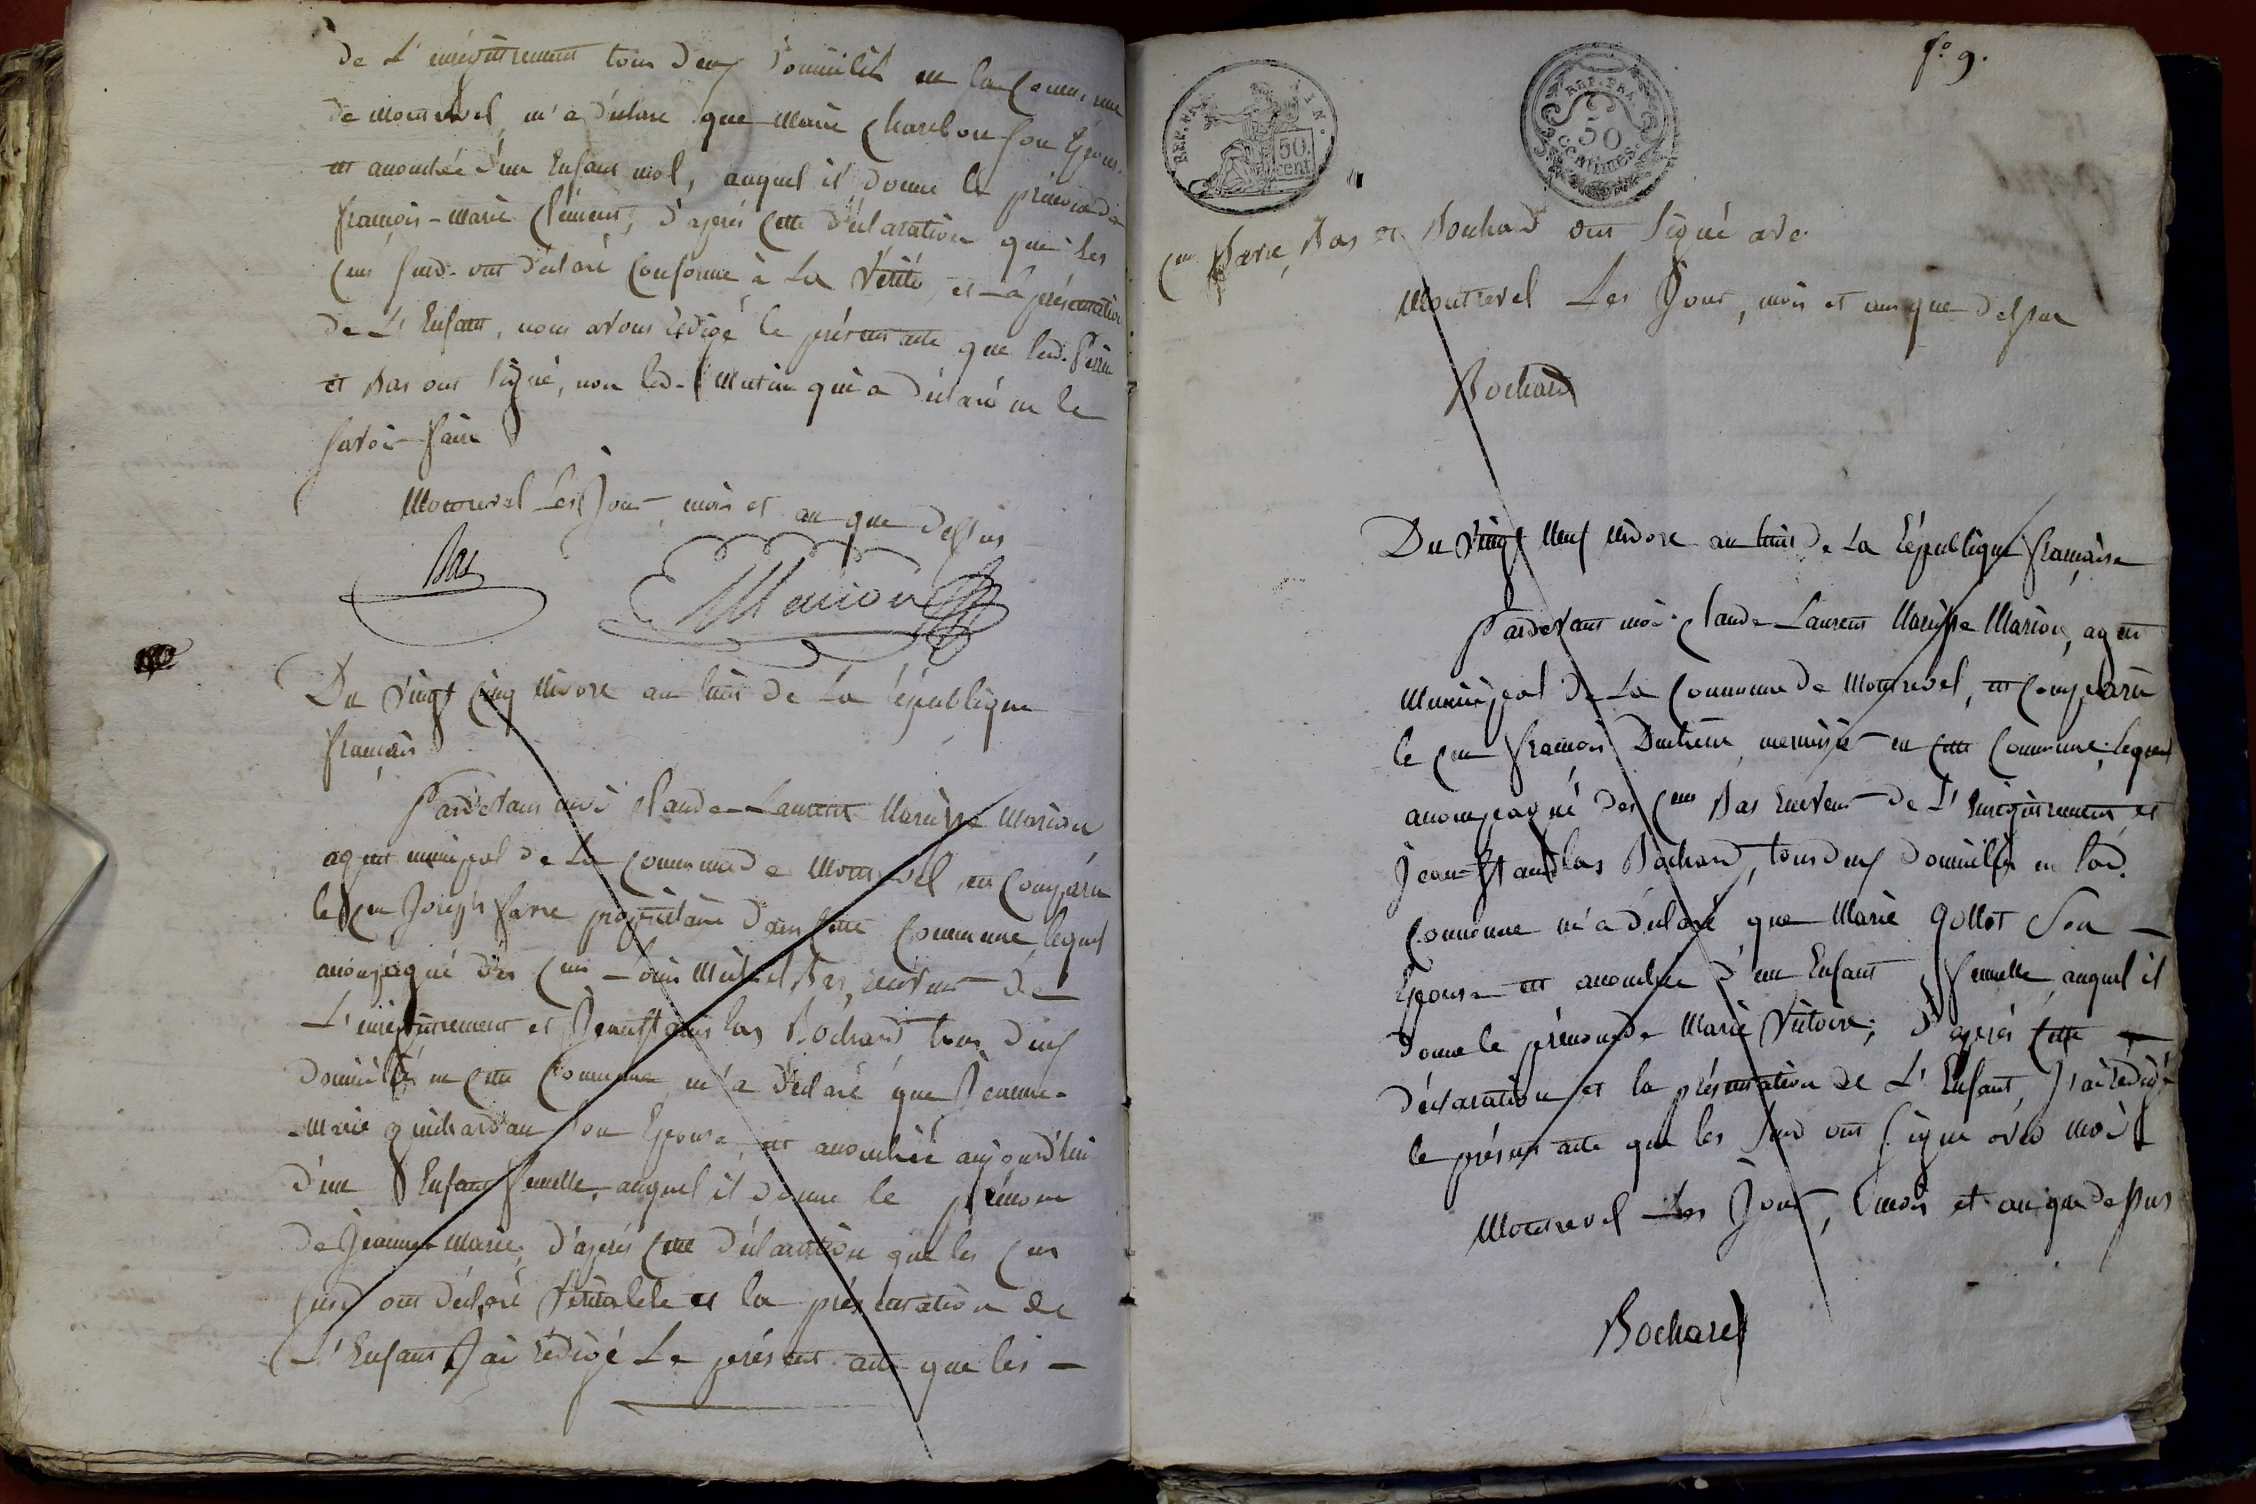 de L'enregistrement tous deux domiciliés en la Commune
de Montrevel, m'a déclaré que Marie Charbon son Epouse
est accouchée d'un Enfant mal, auquel il donne le prénom de
françois-marie Clément, d'après cette déclaration que les
Cens susd. ont déclaré Conforme à La Vérité, et La présentation
de L'Enfant, nous avons rédigé le présent acte que lesd.
et Bas ont signé, non led. Mutin qui a déclaré ne le
savoir faire
Montrevel Les Jour, mois et an que dessus
Bas Marion
Du Vingt Cinq Nivose an huit de La République
français
Pardevant moi Claude Laurent Marion
agent municipal de La Commune de Montrevel, est Comparu
le Cen Joseph favre propriétaire dans cette Commune, lequel
accompagné des Cens Louis Michel Bas, receveur de
L'enregistrement et Jean Stanislas Bochard tous deux
domiciliés en cette Commune, m'a déclaré que Jeanne-
Marie son Epouse, est accouchée aujourd'hui
d'un Enfant femelle, auquel il donne le prénom
de Jeanne Marie, d'après cette déclaration que les Cens
susd ont déclaré Véritable et la présentation de
L'Enfant J'ai rédigé Le présent acte que les
fo. 9.
REP. FRA. 50 cent.
REP. FRA. 50 CENTIMES.
Cen favre, Bas et Bochard ont signé avec
Montrevel Les Jour, mois et an que dessus
Bochard
Du Vingt Neuf Nivose an huit de La République française
Pardevant moi Claude Laurent Marion, agent
Municipal de La Commune de Montrevel, est Comparu
le Cen françois menuisier en cette Commune, lequel
accompagné des Cens Bas receveur de L'enregistrement, et
Jean-Stanislas Bochard, tous deux domiciliés en lad.
Commune m'a déclaré que Marie Gollet Son
Epouse est accouchée d'un Enfant femelle auquel il
donne le prénom de Marie Victoire; d'après cette
déclaration et la présentation de L'Enfant, J'ai rédigé
le présent acte que les susd ont signé avec moi
Montrevel Les Jour, mois et an que dessus
Bochard